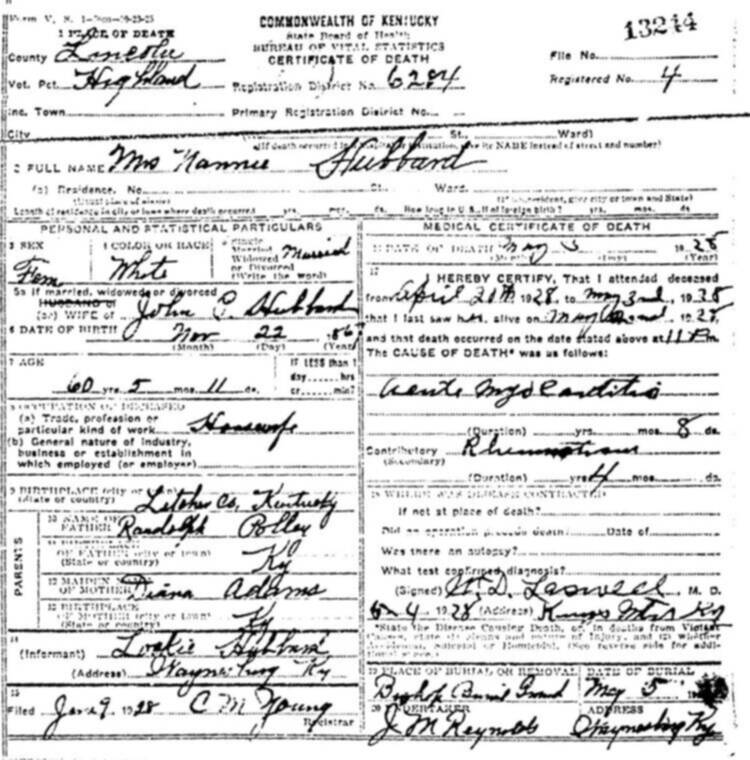 COMMONWEALTH OF KENTUCKY
13244
1 PLACE OF DEATH
State Board of Health
County Lincoln
BUREAU OF VITAL STATISTICS
CERTIFICATE OF DEATH
File No.
Vot. Pct. Highland
Registration District No. 6284
Registered No. 4
Inc. Town
Primary Registration District No.
City
St.
Ward)
(If death occurred in NAME instead of street and number)
2 FULL NAME Mrs Nannie Hubbard
(a) Residence. No.
St.
Ward.
(Usual place of abode)
give city or town and State)
Length of residence in city or town where death occurred yrs. mos. ds. How long in U.S., if of foreign birth? yrs. mos. ds.
PERSONAL AND STATISTICAL PARTICULARS
3 SEX
4 COLOR OR RACE
Single
Married
Widowed
or Divorced
(Write the word)
Married
Fem
White
5a If married, widowed or divorced
HUSBAND of
(or) WIFE of John C. Hubbard
6 DATE OF BIRTH Nov 22
(Month) (Day) (Year)
7 AGE
IF LESS than 1
day hrs
or min?
60 yrs 5 mos 11 ds.
8 OCCUPATION OF DECEASED
(a) Trade, profession or
particular kind of work Housewife
(b) General nature of industry,
business or establishment in
which employed (or employer)
9 BIRTHPLACE (city or
(State or country) Letcher Co, Kentucky
PARENTS
10 NAME OF
FATHER Randolph Polley
11 BIRTHPLACE
OF FATHER (city or town)
(State or country) Ky
12 MAIDEN NAME
OF MOTHER Diana Adams
13 BIRTHPLACE
OF MOTHER (city or town)
(State or country) Ky
14
(Informant) Hubbard
(Address) Waynesburg Ky
15
Filed 9 1928 C M Young
Registrar
MEDICAL CERTIFICATE OF DEATH
DATE OF DEATH May 1928
(Month) (Day) (Year)
17
I HEREBY CERTIFY, That I attended deceased
from April 20th, 1928, to May 2nd, 1928
that I last saw h alive on May 2nd, 1928,
and that death occurred on the date stated above at 11 Pm.
The CAUSE OF DEATH* was as follows:
Acute Myocarditis
(Duration) yrs. mos. 8 ds.
Contributory Rheumatism
(Secondary)
(Duration) yrs 4 mos. ds.
18 WHERE WAS DISEASE CONTRACTED
If not at place of death?
Did an operation precede death? Date of
Was there an autopsy?
What test confirmed diagnosis?
(Signed) W. D. Laswell M. D.
4 1928 (Address) Kings Mtn Ky
*State the Disease Causing Death, or, in deaths from Violent
Causes, state (1) Means and nature of Injury, and (2) whether
Accidental, Suicidal or Homicidal. (See reverse side for addi-
tional space.)
19 PLACE OF BURIAL OR REMOVAL
DATE OF BURIAL
Bishop Burial Ground
May 5
20 UNDERTAKER
ADDRESS
J M Reynolds
Waynesburg Ky